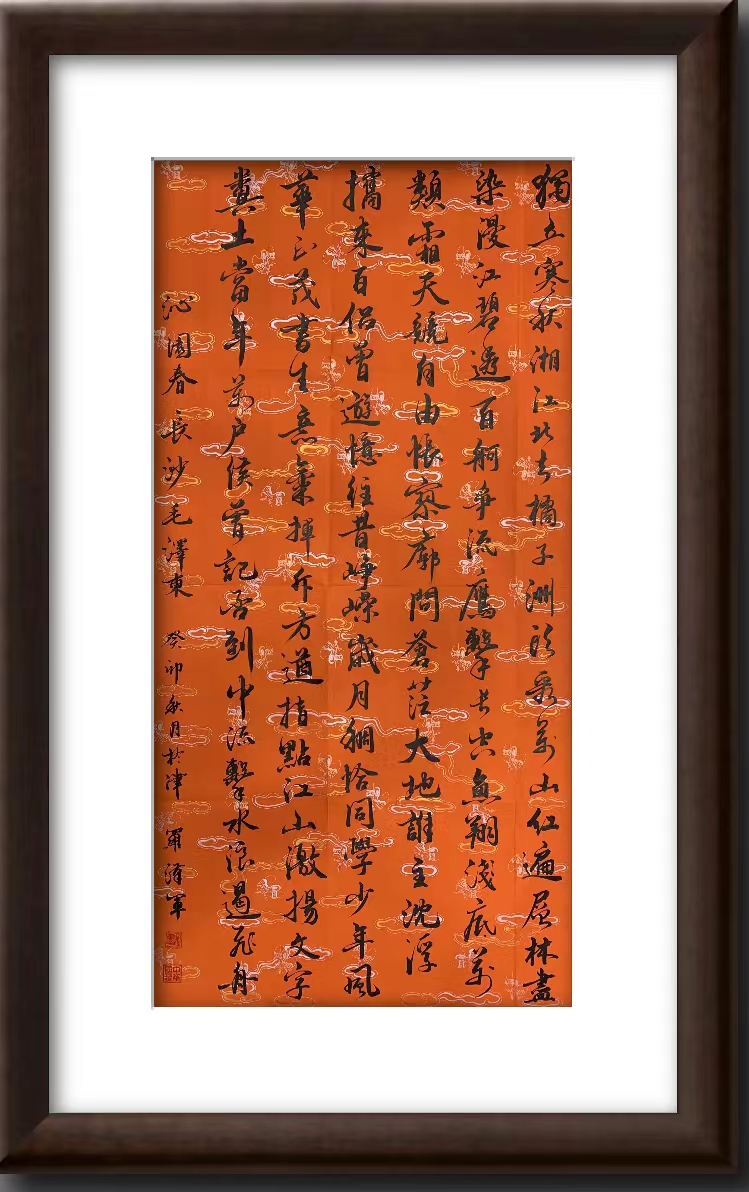 獨立寒秋湘江北去橘子洲頭看萬山紅遍層林盡
染漫江碧透百舸爭流鷹擊長空魚翔淺底萬
類霜天競自由悵寥廓問蒼茫大地誰主沈浮
攜來百侶曾遊憶往昔崢嶸歲月稠恰同學少年風
華正茂書生意氣揮斥方遒指點江山激揚文字
糞土當年萬戶侯曾記否到中流擊水浪遏飛舟
沁園春長沙毛澤東 癸卯秋月於津 軍